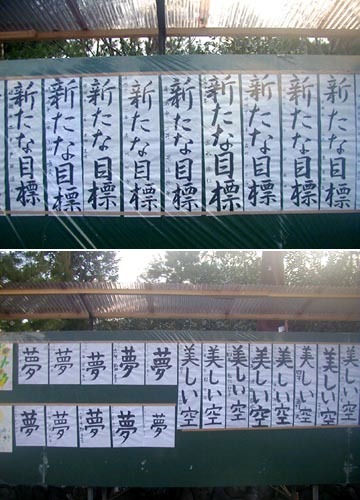 新たな目標
新たな目標
新たな目標
新たな目標
新たな目標
新たな目標
新たな目標
新たな目標
新たな目標
夢
夢
夢
夢
夢
夢
夢
夢
夢
夢
美しい空
美しい空
美しい空
美しい空
美しい空
美しい空
美しい空
美しい空